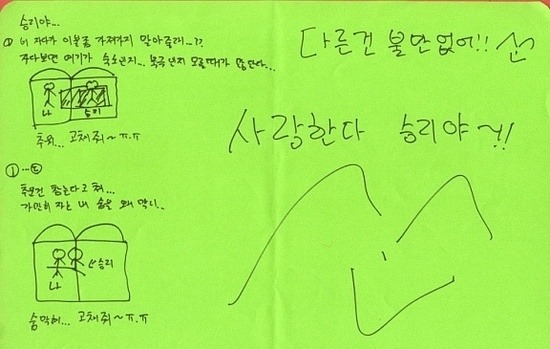 승리야...
① 너 자다가 이불좀 가져가지 말아줄래...??
자다보면 여기가 숙소인지... 북극인지 모를때가 많단다...
나
승리
추워... 고쳐줘~ㅠ.ㅠ
①...또
추운건 참는다고 쳐...
가만히 자는 내 숨을 왜 막니..
나
승리
숨막혀... 고쳐줘~ㅠ.ㅠ
다른건 불만없어!!
사랑한다 승리야~!!